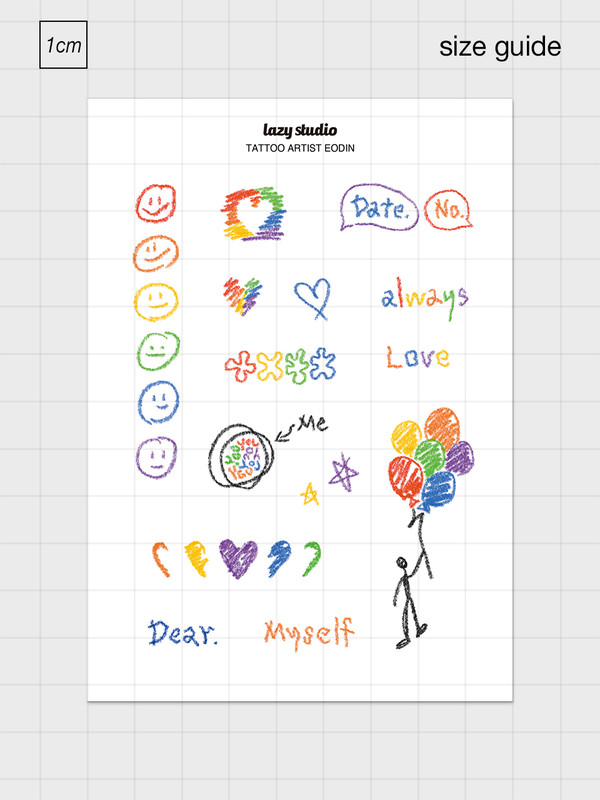 1cm
size guide
lazy studio
TATTOO ARTIST EODIN
Date. No.
always
Love
Me
Dear. Myself